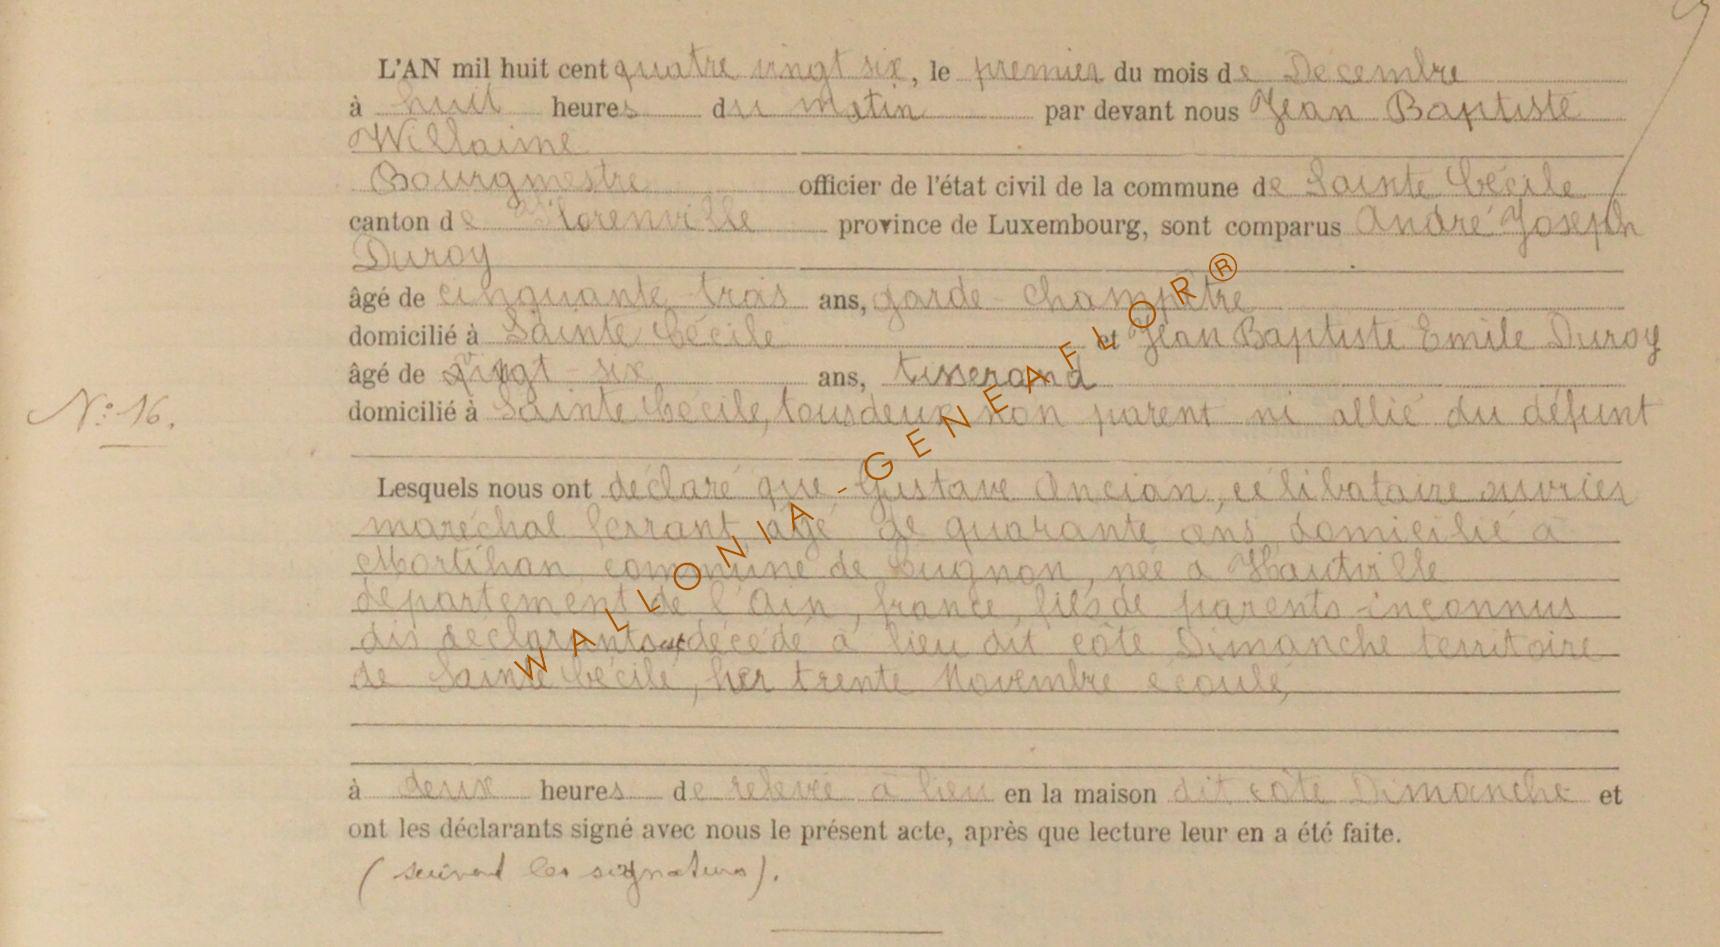 L'AN mil huit cent quatre vingt six, le premier du mois de Décembre
à huit heures du matin par devant nous Jean Baptiste
Willaime
Bourgmestre officier de l'état civil de la commune de Sainte Cécile
canton de Florenville province de Luxembourg, sont comparus André Joseph
Duroy
âgé de cinquante trois ans, garde-champêtre
domicilié à Sainte Cécile et Jean Baptiste Emile Duroy
âgé de vingt-six ans, tisserand
N° 16.
domicilié à Sainte Cécile, tousdeux non parent ni allié du défunt
Lesquels nous ont déclaré que Gustave Ancian, célibataire ouvrier
maréchal ferrant, âgé de quarante ans, domicilié à
Mortihan commune de Cugnon, née à Hautville
département de l'Ain, france, fils de parents inconnus
dis déclarants est décédé à lieu dit côte Dimanche territoire
de Sainte Cécile, hier trente Novembre écoulé,
à deux heures de relevée à lieu en la maison dit côte Dimanche et
ont les déclarants signé avec nous le présent acte, après que lecture leur en a été faite.
(suivent les signatures).
WALLONIA-GENEAFLOR®